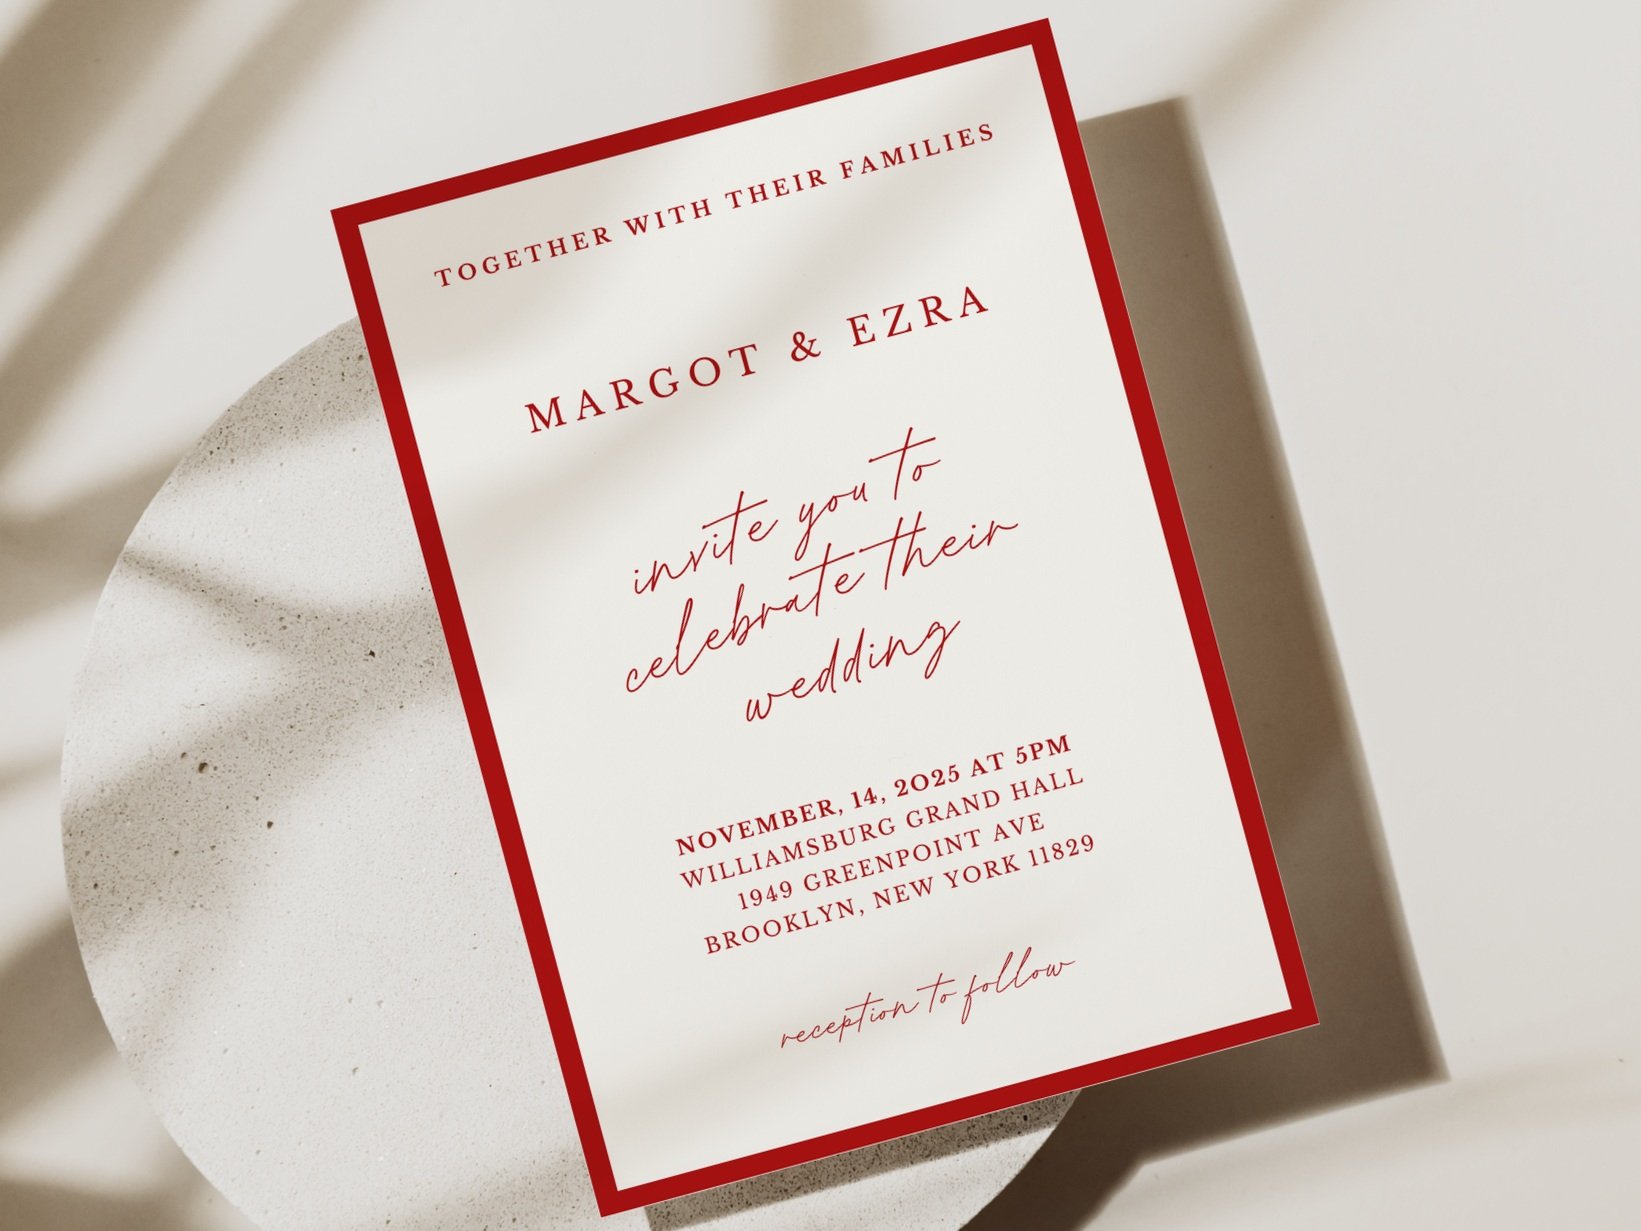 TOGETHER WITH THEIR FAMILIES
MARGOT & EZRA
invite you to
celebrate their
wedding
NOVEMBER, 14, 2025 AT 5PM
WILLIAMSBURG GRAND HALL
1949 GREENPOINT AVE
BROOKLYN, NEW YORK 11829
reception to follow